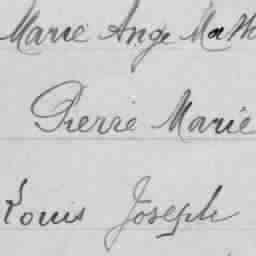 Marie Ange Math
Pierre Marie
Louis Joseph